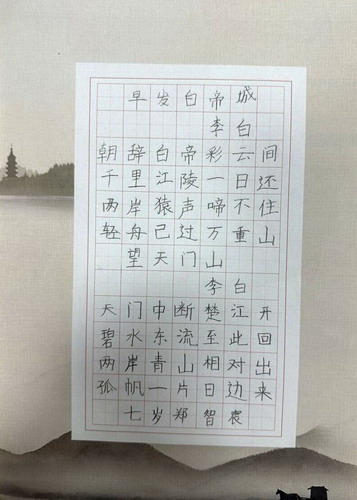 早发白帝城
李白
朝辞白帝彩云间
千里江陵一日还
两岸猿声啼不住
轻舟已过万重山
望天门山
李白
天门中断楚江开
碧水东流至此回
两岸青山相对出
孤帆一片日边来
七岁郑智宸